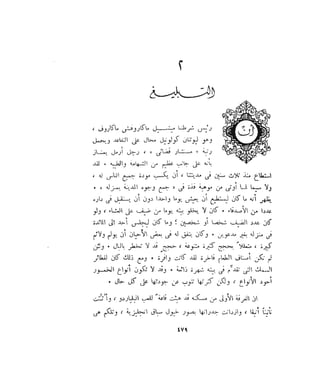 ٢
رئيس شرطتنا ميشيل ماكاروفتش ماكاروف ،
وهو ليوتنان كولونيل محال على التقاعد ويحمل
رتبة مستشار قضائى ، رجل أرمل يمتاز
بأنه على جانب عظيم من الشهامة والطيبة . لقد
استطاع منذ ثلاث سنين فى مدينتنا ، أن يكسب مودة جميع الناس له ،
ولا سيما لما أوتى من موهبة فذة فى « جمع وجوه المدينة بمنزله » .
يظهر أنه ما كان ليستطيع أن يعيش يوما واحدا دون أن يستقبل فى داره
عددا من الأصدقاء . كان لا يخلو بيته يوما من ضيف على العشاء ، ولو
كان عدد الضيف شخصا أو شخصين ؛ وما كان ليجلس أحد إلى المائدة
فى منزله بغير مدعوين . وكان يتفق له فى بعض الأحيان أن يولم ولائم
كبيرة ، متعللا بحجج كثيرة متنوعة ، حجج قد لا تخطر بالبال . ولئن
لم تكن أصناف الطعام فاخرة لقد كانت وافرة . ومع ذلك كان لفطائر
السمك التى تقدم فى بيته شهرة ذائعة . وقد لا تكون أنواع الخمور
أجود الأنواع ، ولكن كثرتها تنوب عن جودتها على كل حال .
ان الغرفة الأولى من مسكنه قد هيئت قاعة للعب البلياردو ، وأثثت
تأثيثا أنيقا ، وازدانت جدرانها بصور خيول سباق انجليزية ، وتلكم هى
٤٧٩